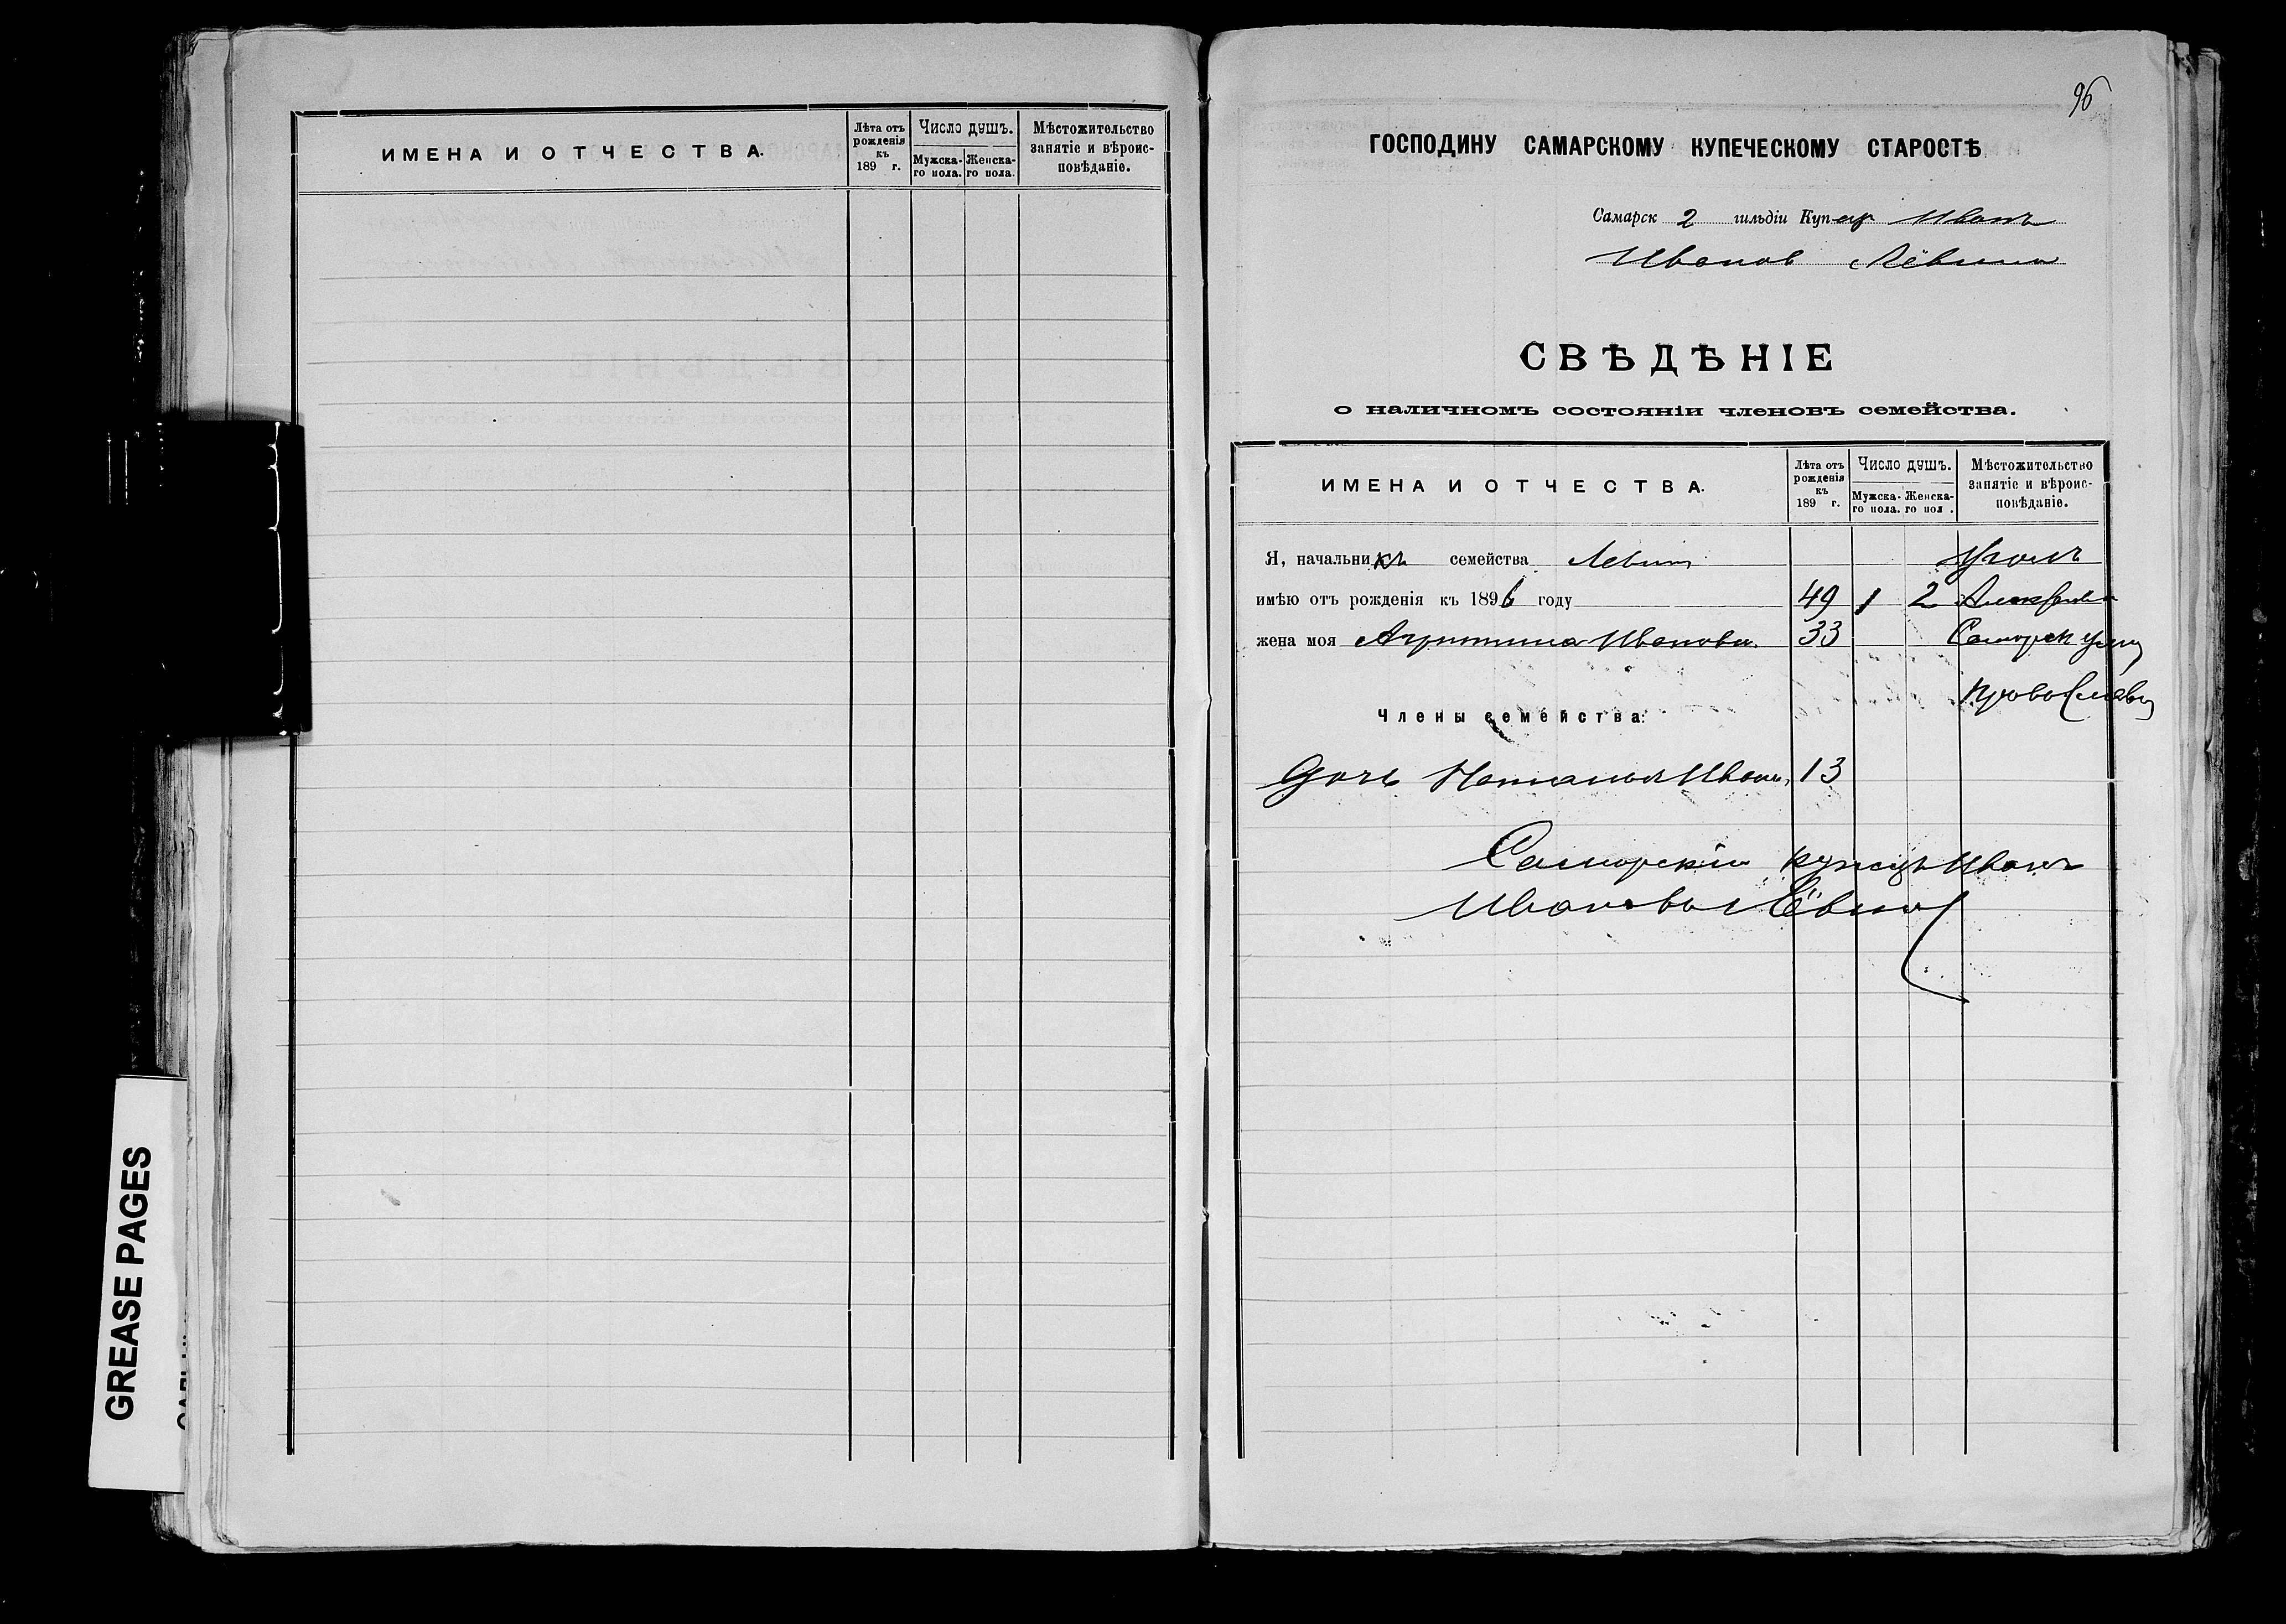 ИМЕНА И ОТЧЕСТВА.
Лѣта отъ рожденія къ 189 г.
Число душъ.
Мужска-го пола.
Женска-го пола.
Мѣстожительство занятіе и вѣроис-повѣданіе.
GREASE PAGES
96
ГОСПОДИНУ САМАРСКОМУ КУПЕЧЕСКОМУ СТАРОСТѢ
Самарск 2 гильдіи Купец Иванъ
Иванов Лёвин
СВѢДѢНІЕ
о наличномъ состояніи членовъ семейства.
ИМЕНА И ОТЧЕСТВА.
Лѣта отъ рожденія къ 189 г.
Число душъ.
Мужска-го пола.
Женска-го пол .
Мѣстожительство занятіе и вѣроис-повѣданіе.
Я, начальникъ семейства Левин
имѣю отъ рожденія къ 1896 году 49 1 2
жена моя Ивановн. 33 Самарск
Православн
Члены семейства:
Дочь Наталья Иван, 13
Самарскій купецъ Иванъ
Ивановъ Лёвин